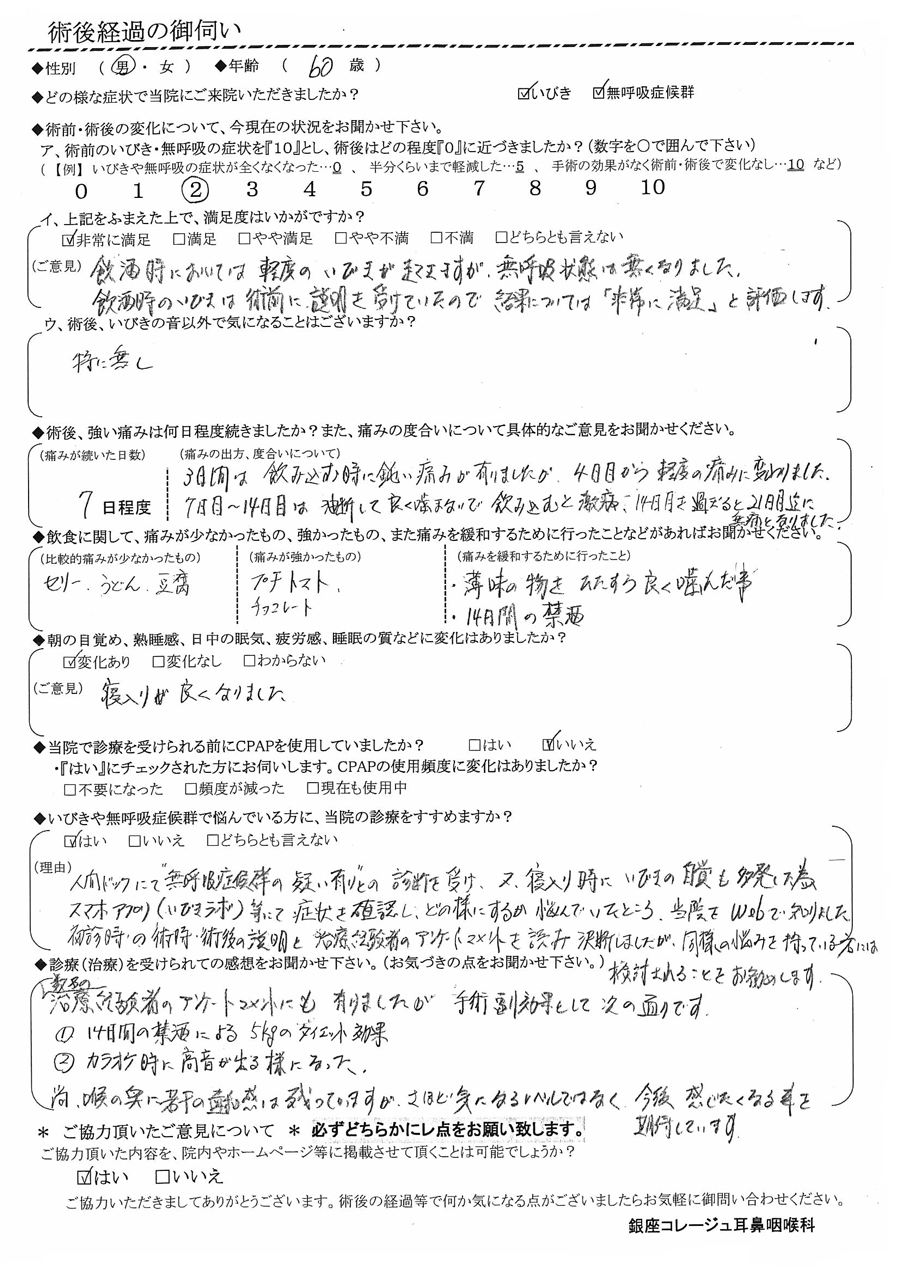 術後経過の御伺い
◆性別 ( 男 ・ 女 ) ◆年齢 ( 60 歳 )
◆どの様な症状で当院にご来院いただきましたか? ☑いびき ☑無呼吸症候群
◆術前・術後の変化について、今現在の状況をお聞かせ下さい。
ア、術前のいびき・無呼吸の症状を『10』とし、術後はどの程度『0』に近づきましたか?(数字を○で囲んで下さい)
(【例】 いびきや無呼吸の症状が全くなくなった…0 、 半分くらいまで軽減した…5 、 手術の効果がなく術前・術後で変化なし…10 など)
0 1 ② 3 4 5 6 7 8 9 10
イ、上記をふまえた上で、満足度はいかがですか?
☑非常に満足 □満足 □やや満足 □やや不満 □不満 □どちらとも言えない
(ご意見) 飲酒時においては 軽度の いびきが 出てますが、無呼吸状態は無くなりました。
飲酒時のいびきは 術前に 説明を 受けていたので 結果については「非常に満足」と評価します。
ウ、術後、いびきの音以外で気になることはございますか?
特に無し
◆術後、強い痛みは何日程度続きましたか?また、痛みの度合いについて具体的なご意見をお聞かせください。
(痛みが続いた日数) (痛みの出方、度合いについて)
3日間は 飲み込む時に鈍い痛みが有りましたが、4日目から 軽度の痛みに変わりました。
7 日程度 7日目~14日目は 油断して 良く噛まないで 飲み込むと 激痛、14日目を過ぎると21日目近に
無痛と なりました。
◆飲食に関して、痛みが少なかったもの、強かったもの、また痛みを緩和するために行ったことなどがあればお聞かせください。
(比較的痛みが少なかったもの) (痛みが強かったもの) (痛みを緩和するために行ったこと)
ゼリー、うどん、豆腐 プチトマト、 ・薄味の物を ひたすら 良く噛んだ事
チョコレート ・14日間の禁酒
◆朝の目覚め、熟睡感、日中の眠気、疲労感、睡眠の質などに変化はありましたか?
☑変化あり □変化なし □わからない
(ご意見) 寝入りが 良くなりました
◆当院で診療を受けられる前にCPAPを使用していましたか? □はい ☑いいえ
・『はい』にチェックされた方にお伺いします。CPAPの使用頻度に変化はありましたか?
□不要になった □頻度が減った □現在も使用中
◆いびきや無呼吸症候群で悩んでいる方に、当院の診療をすすめますか?
☑はい □いいえ □どちらとも言えない
(理由) 人間ドックにて"無呼吸症候群の疑い有り"との 診断を受け、又、寝入り時に いびきの自覚も 多発した為
スマホアプリ(いびきラボ)等にて 症状を確認し、どの様にするか 悩んでいたところ、当院を Webで知りました
初診時の術時・術後の説明と 治療経験者のアンケートコメントを読み 決断しましたが、同様の悩みを持っている者には
検討されることをお勧めします。
◆診療(治療)を受けられての感想をお聞かせ下さい。(お気づきの点をお聞かせ下さい。)
治療経験者のアンケートコメントにも 有りましたが 手術副効果として 次の通りです。
① 14日間の禁酒による 5kgのダイエット効果
② カラオケ時に 高音が出る様になった。
尚、喉の奥に若干の違和感は残っていますが、さほど気になるレベルではなく、今後 感じなくなる事を
期待しています。
* ご協力頂いたご意見について * 必ずどちらかにレ点をお願い致します。
ご協力頂いた内容を、院内やホームページ等に掲載させて頂くことは可能でしょうか?
☑はい □いいえ
ご協力いただきましてありがとうございます。術後の経過等で何か気になる点がございましたらお気軽に御問い合わせください。
銀座コレージュ耳鼻咽喉科